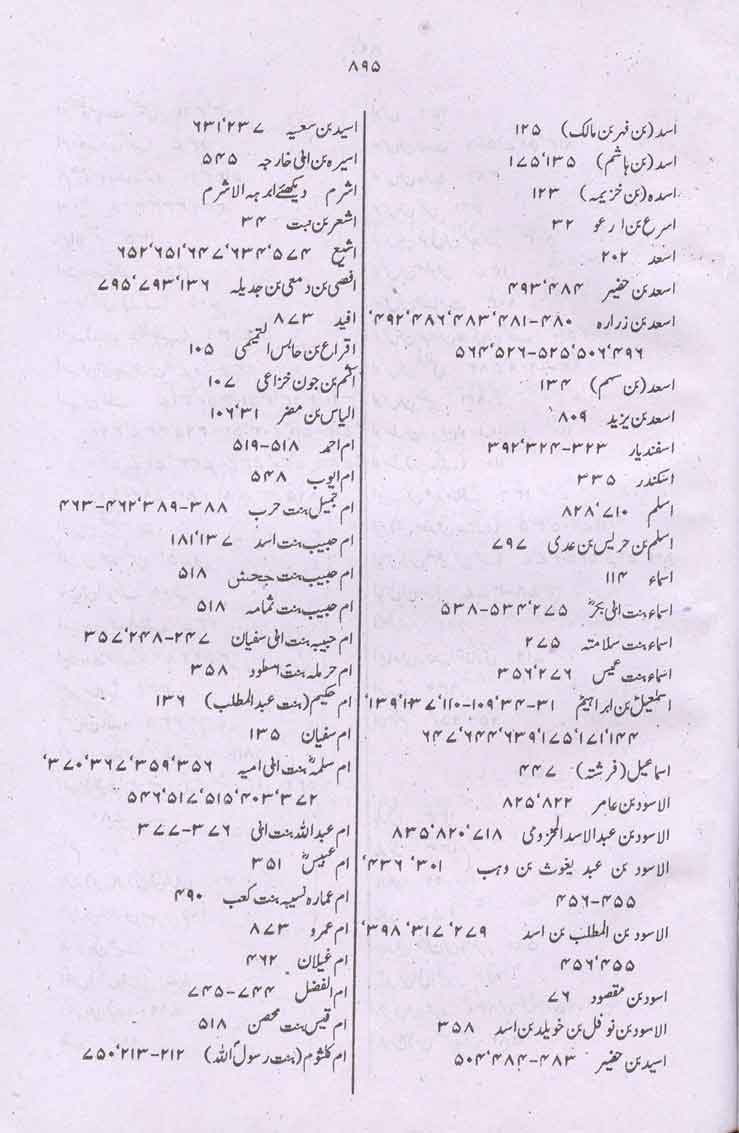 ۸۹۵
اسد (بن فہر بن مالک) ۱۲۵
اسد (بن ہاشم) ۱۳۵‘۱۷۵
اسدہ (بن خزیمہ) ۱۲۳
اسرع بن ارعو ۳۲
اسعد ۲۰۲
اسعد بن حضیر ۴۸۴‘۴۹۳
اسعد بن زرارہ ۴۸۰-۴۸۱‘۴۸۳‘۴۸۶‘۴۹۲‘
۴۹۶‘۵۰۶‘۵۲۵-۵۲۶‘۵۶۴
اسعد (بن سہم) ۱۳۴
اسعد بن یزید ۸۰۹
اسفندیار ۳۲۳-۳۲۴‘۳۹۲
اسکندر ۳۳۵
اسلم ۷۱۰‘۸۲۸
اسلم بن حریس بن عدی ۷۹۷
اسماء ۱۱۴
اسماء بنت ابی بکرؓ ۲۷۵‘۵۳۴-۵۳۸
اسماء بنت سلامتہ ۲۷۵
اسماء بنت عمیس ۲۷۶‘۳۵۶
اسمٰعیلؑ بن ابراہیمؑ ۳۱-۳۴‘۱۰۹-۱۱۰‘۱۳۷‘۱۳۹‘
۱۴۴‘۱۷۱‘۱۷۵‘۶۳۹‘۶۴۴‘۶۴۷
اسماعیل (فرشتہ) ۴۴۷
الاسود بن عامر ۸۲۲‘۸۲۵
الاسود بن عبدالاسد المخزومی ۷۱۸‘۸۲۰‘۸۳۵
الاسود بن عبد یغوث بن وہب ۳۰۱‘۴۳۶‘
۴۵۵-۴۵۶
الاسود بن المطلب بن اسد ۲۷۹‘۳۱۷‘۳۹۸‘
۴۵۵‘۴۵۶
اسود بن مقصود ۷۶
الاسود بن نوفل بن خویلد بن اسد ۳۵۸
اسید بن حضیر ۴۸۳-۴۸۴‘۵۰۴
اسید بن سعیہ ۲۳۷‘۶۳۱
اسیرہ بن ابی خارجہ ۵۴۵
اشرم دیکھئے ابرہہ الاشرم
اشعر بن نبت ۳۴
اشیع ۵۷۴‘۶۳۴‘۶۴۷‘۶۵۱‘۶۵۲
افصی بن دعمی بن جدیلہ ۱۳۶‘۷۹۳‘۷۹۵
افید ۸۷۳
اقراع بن حابس التیمی ۱۰۵
اکثم بن جون خزاعی ۱۰۷
الیاس بن مضر ۳۱‘۱۰۶
ام احمد ۵۱۸-۵۱۹
ام ایوب ۵۴۸
ام جمیل بنت حرب ۳۸۸-۳۸۹‘۴۶۲-۴۶۳
ام حبیب بنت اسد ۱۳۷‘۱۸۱
ام حبیب بنت جحش ۵۱۸
ام حبیب بنت ثمامہ ۵۱۸
ام حبیبہ بنت ابی سفیان ۲۴۷-۲۴۸‘۳۵۷
ام حرملہ بنت اسطود ۳۵۸
ام حکیم (بنت عبدالمطلب) ۱۳۶
ام سفیان ۱۳۵
ام سلمہؓ بنت ابی امیہ ۳۵۶‘۳۵۹‘۳۶۷‘۳۷۰‘
۳۷۲‘۴۰۳‘۵۱۵‘۵۱۷‘۵۴۶
ام عبداللہ بنت ابی ۳۷۶-۳۷۷
ام عبیسؓ ۳۵۱
ام عمارہ نسیبہ بنت کعب ۴۹۰
ام عمرو ۸۷۳
ام غیلان ۴۶۲
ام الفضل ۷۴۴-۷۴۵
ام قیس بنت محصن ۵۱۸
ام کلثوم (بنت رسولؐ اللہ) ۲۱۲-۲۱۳‘۷۵۰